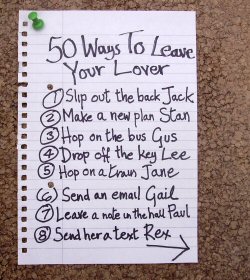 50 Ways To Leave
Your Lover
1 Slip out the back Jack
2 Make a new plan Stan
3 Hop on the bus Gus
4 Drop off the key Lee
5 Hop on a train Jane
6 Send an email Gail
7 Leave a note in the hall Paul
8 Send her a text Rex